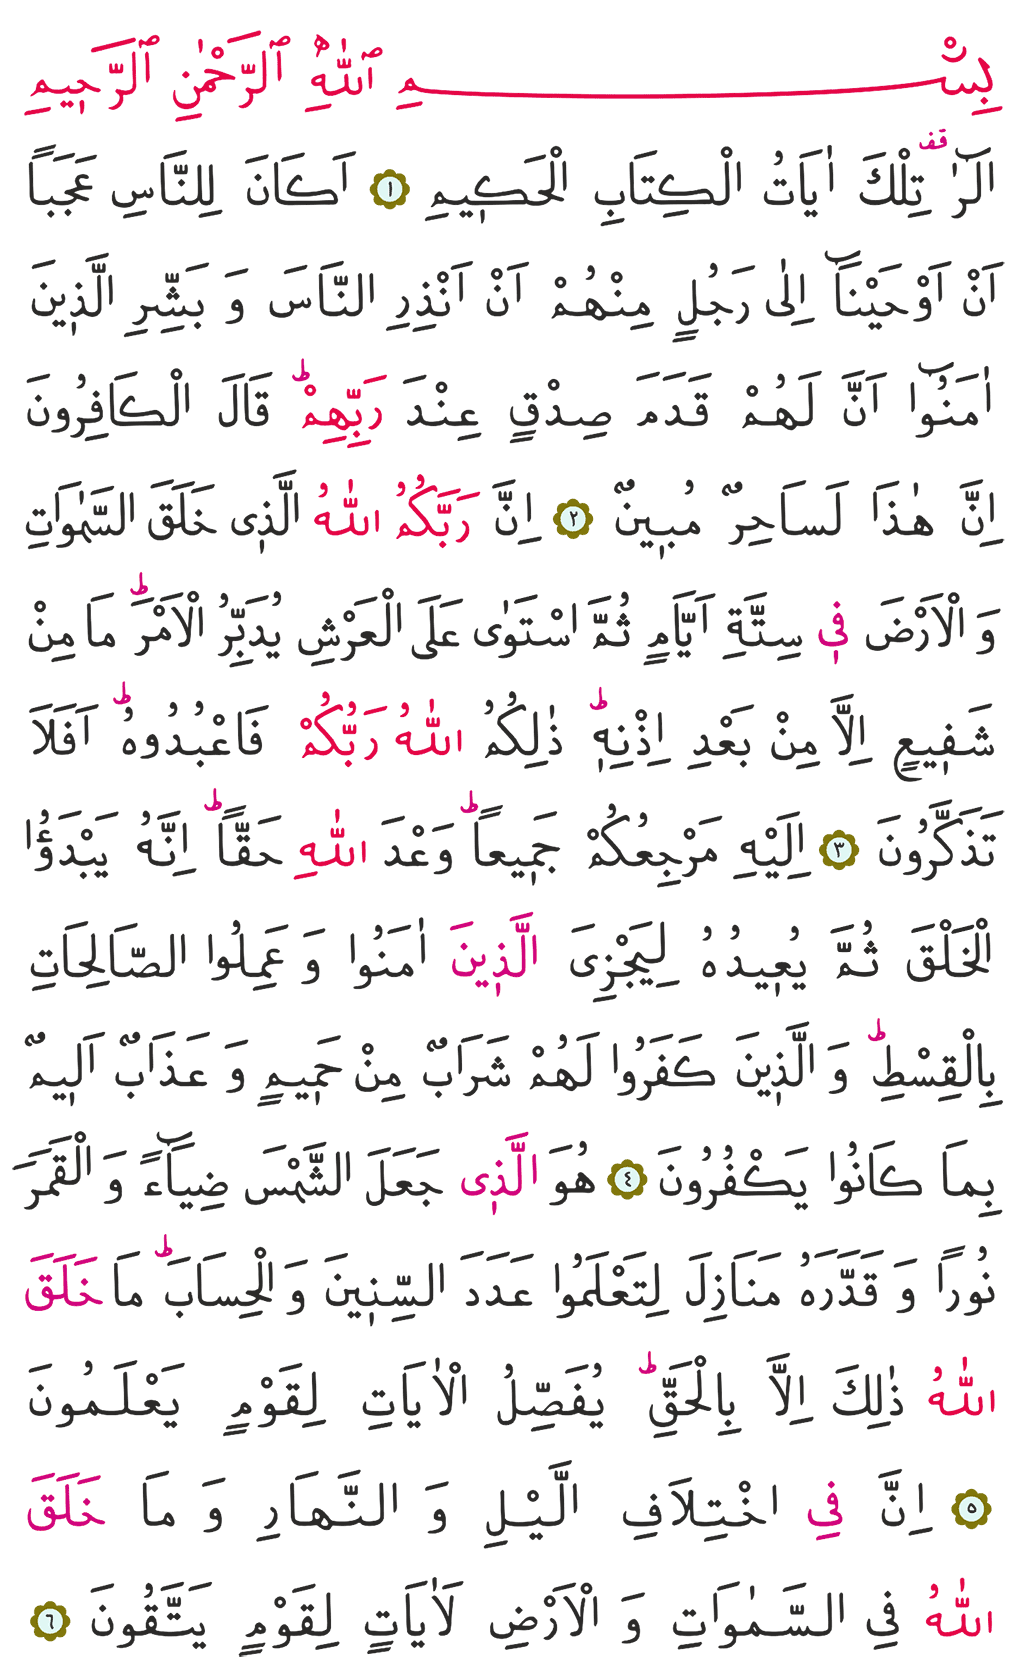 بِسْــــــمِ ٱللّٰهِ ٱلرَّحْمٰنِ ٱلرَّح۪يمِ
الٓرٰ ۠ تِلْكَ اٰيَاتُ الْكِتَابِ الْحَك۪يمِ ﴿١﴾ اَكَانَ لِلنَّاسِ عَجَبًا
اَنْ اَوْحَيْنَٓا اِلٰى رَجُلٍ مِنْهُمْ اَنْ اَنْذِرِ النَّاسَ وَ بَشِّرِ الَّذ۪ينَ
اٰمَنُٓوا اَنَّ لَهُمْ قَدَمَ صِدْقٍ عِنْدَ رَبِّهِمْۜ قَالَ الْكَافِرُونَ
اِنَّ هٰذَا لَسَاحِرٌ مُب۪ينٌ ﴿٢﴾ اِنَّ رَبَّكُمُ اللّٰهُ الَّذ۪ى خَلَقَ السَّمٰوَاتِ
وَ الْاَرْضَ ف۪ي سِتَّةِ اَيَّامٍ ثُمَّ اسْتَوٰى عَلَى الْعَرْشِ يُدَبِّرُ الْاَمْرَۜ مَا مِنْ
شَف۪يعٍ اِلَّا مِنْ بَعْدِ اِذْنِه۪ۜ ذٰلِكُمُ اللّٰهُ رَبُّكُمْ فَاعْبُدُوهُۜ اَفَلَا
تَذَكَّرُونَ ﴿٣﴾ اِلَيْهِ مَرْجِعُكُمْ جَم۪يعًاۜ وَعْدَ اللّٰهِ حَقًّاۜ اِنَّهُ يَبْدَؤُا
الْخَلْقَ ثُمَّ يُع۪يدُهُ لِيَجْزِىَ الَّذ۪ينَ اٰمَنُوا وَ عَمِلُوا الصَّالِحَاتِ
بِالْقِسْطِۜ وَ الَّذ۪ينَ كَفَرُوا لَهُمْ شَرَابٌ مِنْ حَم۪يمٍ وَ عَذَابٌ اَل۪يمٌ
بِمَا كَانُوا يَكْفُرُونَ ﴿٤﴾ هُوَ الَّذ۪ى جَعَلَ الشَّمْسَ ضِيَٓاءً وَ الْقَمَرَ
نُورًا وَ قَدَّرَهُ مَنَازِلَ لِتَعْلَمُوا عَدَدَ السِّن۪ينَ وَ الْحِسَابَۜ مَا خَلَقَ
اللّٰهُ ذٰلِكَ اِلَّا بِالْحَقِّۜ يُفَصِّلُ الْاٰيَاتِ لِقَوْمٍ يَعْلَمُونَ
﴿٥﴾ اِنَّ فِي اخْتِلَافِ الَّيْلِ وَ النَّهَارِ وَ مَا خَلَقَ
اللّٰهُ فِي السَّمٰوَاتِ وَ الْاَرْضِ لَاٰيَاتٍ لِقَوْمٍ يَتَّقُونَ ﴿٦﴾